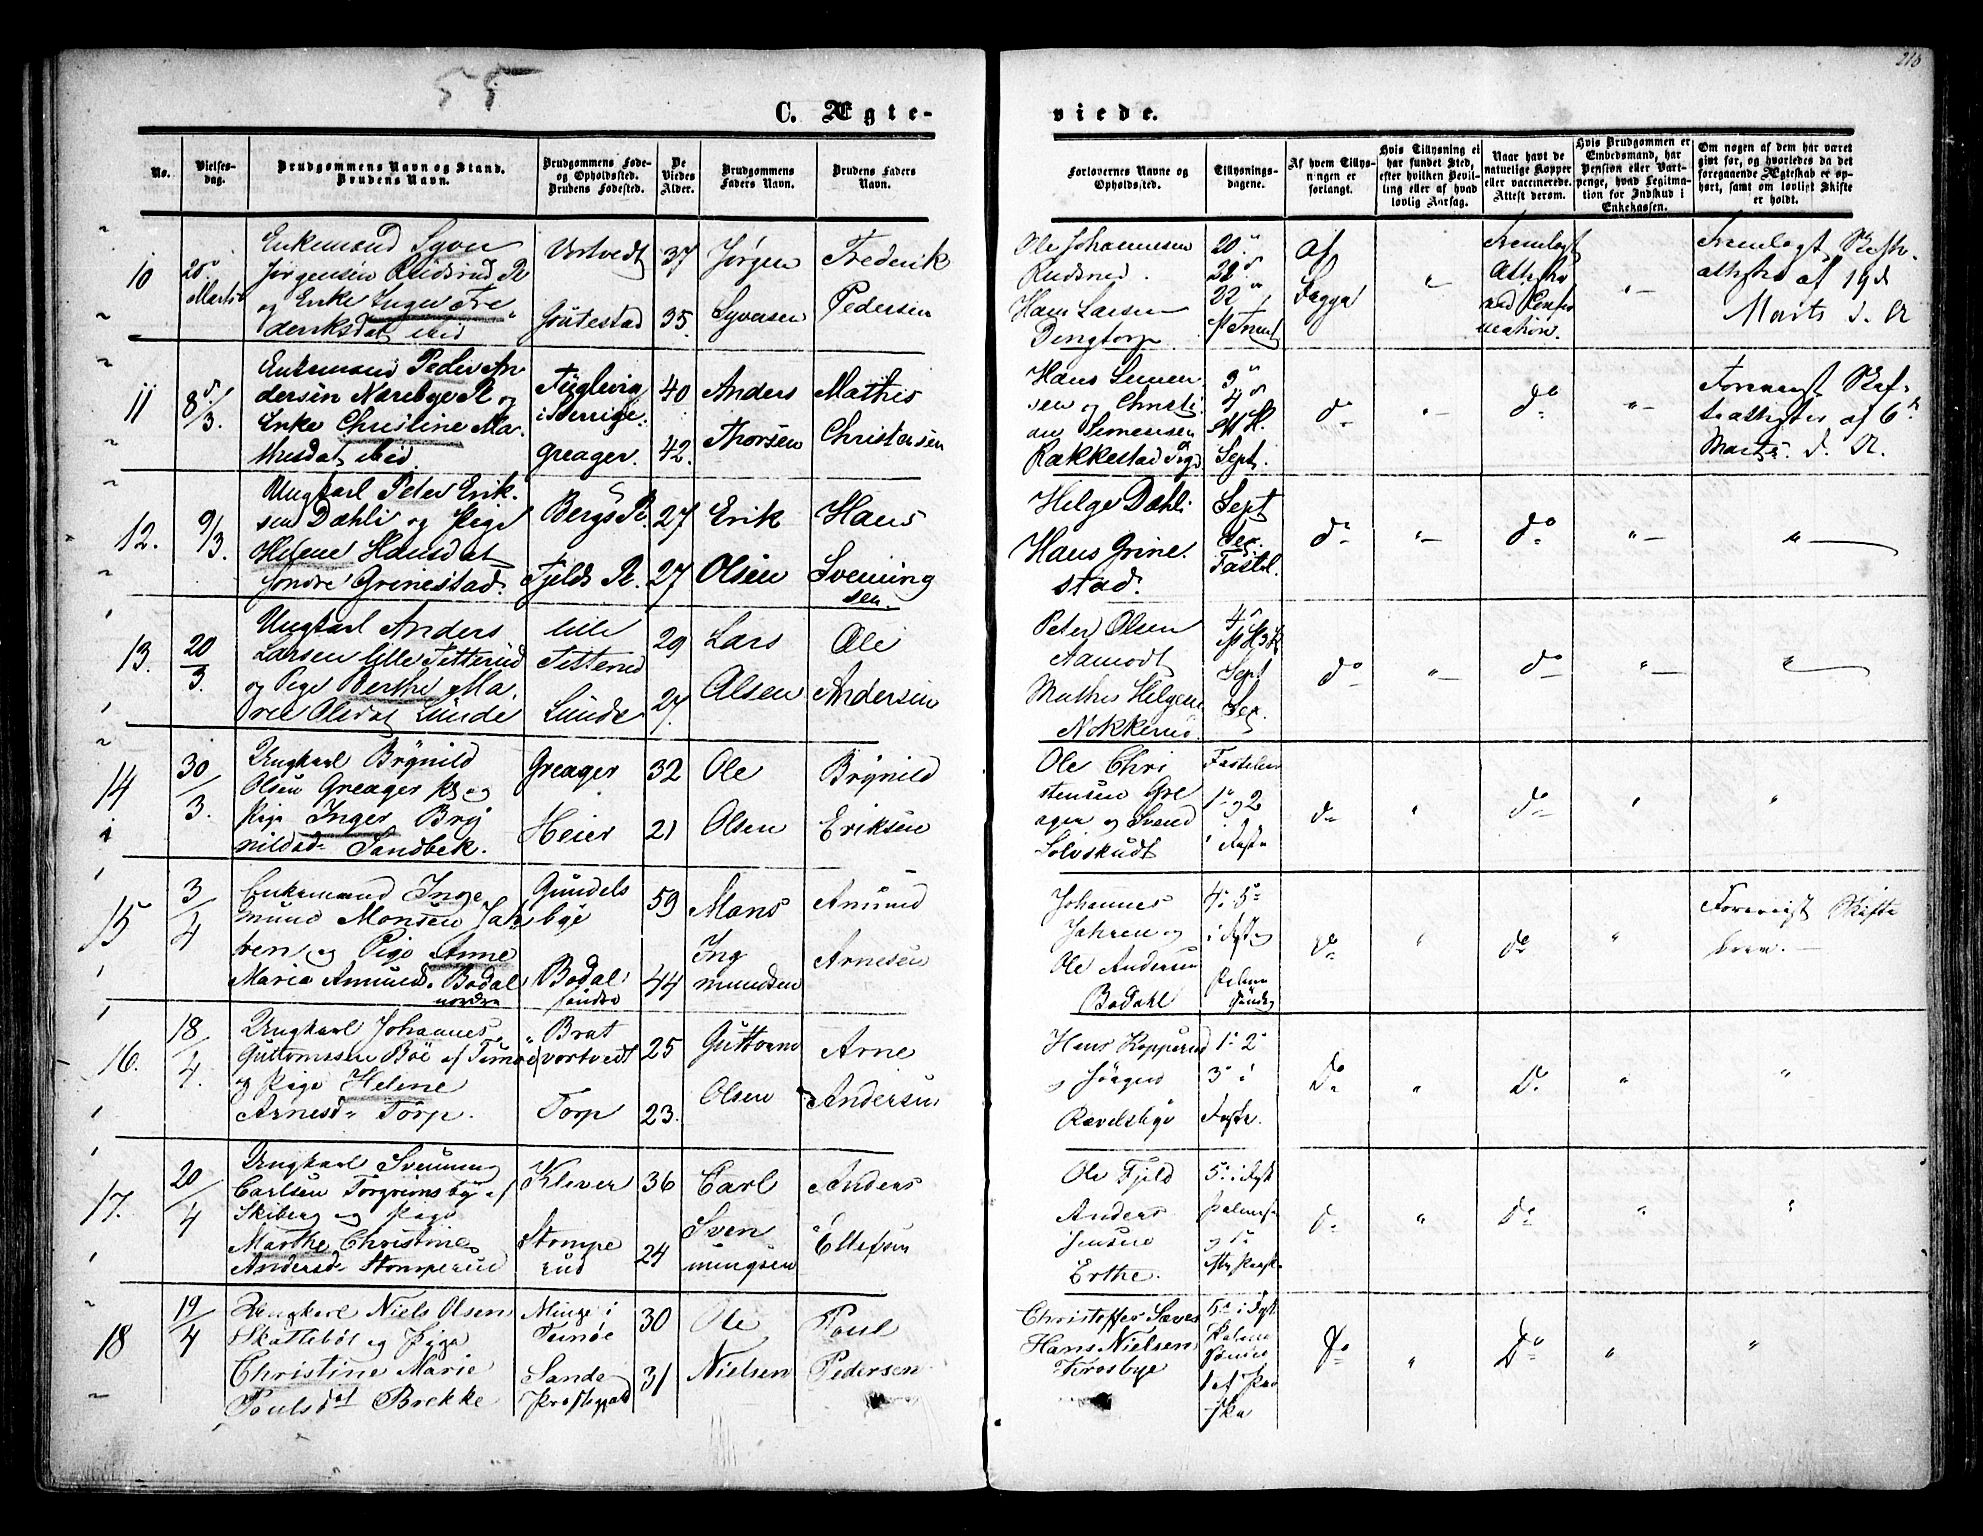 55
216
C. Ægte-
viede.
No.
Vielses-
dag.
Brudgommens Navn og Stand.
Brudens Navn.
Brudgommens Føde-
og Opholdssted.
Brudens Fødested.
De
Viedes
Alder.
Brudgommens
Faders Navn.
Brudens Faders
Navn.
Forlovernes Navne og
Opholdssted.
Tillysnings-
dagene.
Af hvem Tillys-
ningen er
forlangt.
Hvis Tillysning ei
har fundet Sted,
efter hvilken Bevil-
ling eller af hvad
lovlig Aarsag.
Naar havt de
naturlige Kopper
eller vaccinerede.
Attest derom.
Hvis Brudgommen er
Enbedsmand, har
Pension eller Vart-
penge, hvad Legitma-
tion for Indskud i
Enkekassen.
Om nogen af dem har været
givt før, og hvorledes da det
foregaaende Ægteskab er op-
hørt, samt om lovligt Skifte
er holdt.
10
20
Marts
Enkemand Syver
Jørgensen Rudsrud
og Enke Inger Fre
deriksdat ibid
Vortvedt
37
35
Jørgen
Syversen
Frederik
Pedersen
Ole Johannesen
Rudsrud.
Hans Larsen
Dengtorp
af
Begge
Fremlagt
Marts d. A
11
8/3.
Enkemand Peder An
dersen Narebye og
Enke Christine Ma
thisdat ibid
Fuglevig
i Sverrige.
Greager.
40
42.
Anders
Thorsen
Mathis
Christensen
Hans Simen
sen og Christi
an Simensen
Rakkestad
Sept.
do
do
Marts d. A.
12.
9/3.
Ungkarl Peter Erik
sen Dæhli og Pige
Helene Hansdat
søndre Grinestad.
Bergs
Fjelds
27
27
Erik
Olsen
Hans
Svenning
sen.
Helge Dæhli
Hans Grine
stad.
Sept
Sex.
Fastel.
do
do
13.
20/3.
Ungkarl Anders
Larsen lille Tetterud
og Pige Berthe Ma
rie Olsdat Lunde
lille
Tetterud
Lunde
29
27.
Lars
Olsen
Ole
Andersen
Peter Olsen
Aamodt
Mathis Helgesen
Nokkerud
Sept
Sex.
do
do
14
30/3.
Ungkarl Brynild
Olsen Greager og
Pige Inger Bry
nildsd Sandbek.
Greager
Heier
32
21
Ole
Olsen
Brynild
Eriksen
Ole Chri
stensen Gre
ager og Svend
Solvskudt
Fastelavn
1 og 2
i Faste
do
do
15
3/4
Enkemand Inge
mund Monsen Jah
ren og Pige Anne
Maria Amunds. Bodal
nordre
Gundels
bye
Bodal
søndre
59
44
Mons
Ing
mundsen
Amund
Arnesen
Johannes
Jahren og
Ole Andersen
Bodahl
do
do
Foreviist Skifte
brev.
16.
18/4.
Ungkarl Johannes
Guttormsen Böe af Tunøe
og Pige Helene
Arnesd Torp.
Brat
vortvedt
Torp
25
23.
Guttorm
Olsen
Arne
Andersen
Hans Kopperud
og Jørgen
Ravelsbye
1 2
3 i
Faste.
Do
Do
17.
20/4
Ungkarl Svenning
Carlsen Torgrimsby af
Skiberg og Pige
Marthe Christine
Andersd Stomperud
Klever
Stompe
rud
36
24
Carl
Sven
ningsen
Anders
Ellefsen
Ole Fjeld
Anders
Jensen
Erthe.
do
do
18
19/4
Ungkarl Niels Olsen
Skattebøl og Pige
Christine Marie
Poulsdat Brekke
Minge i
Tunøe
Sande
Præstegjæld
30
31
Ole
Nielsen
Poul
Pedersen
Christoffer Sæves
Hans Nielsen
Frosbye
Do
Do